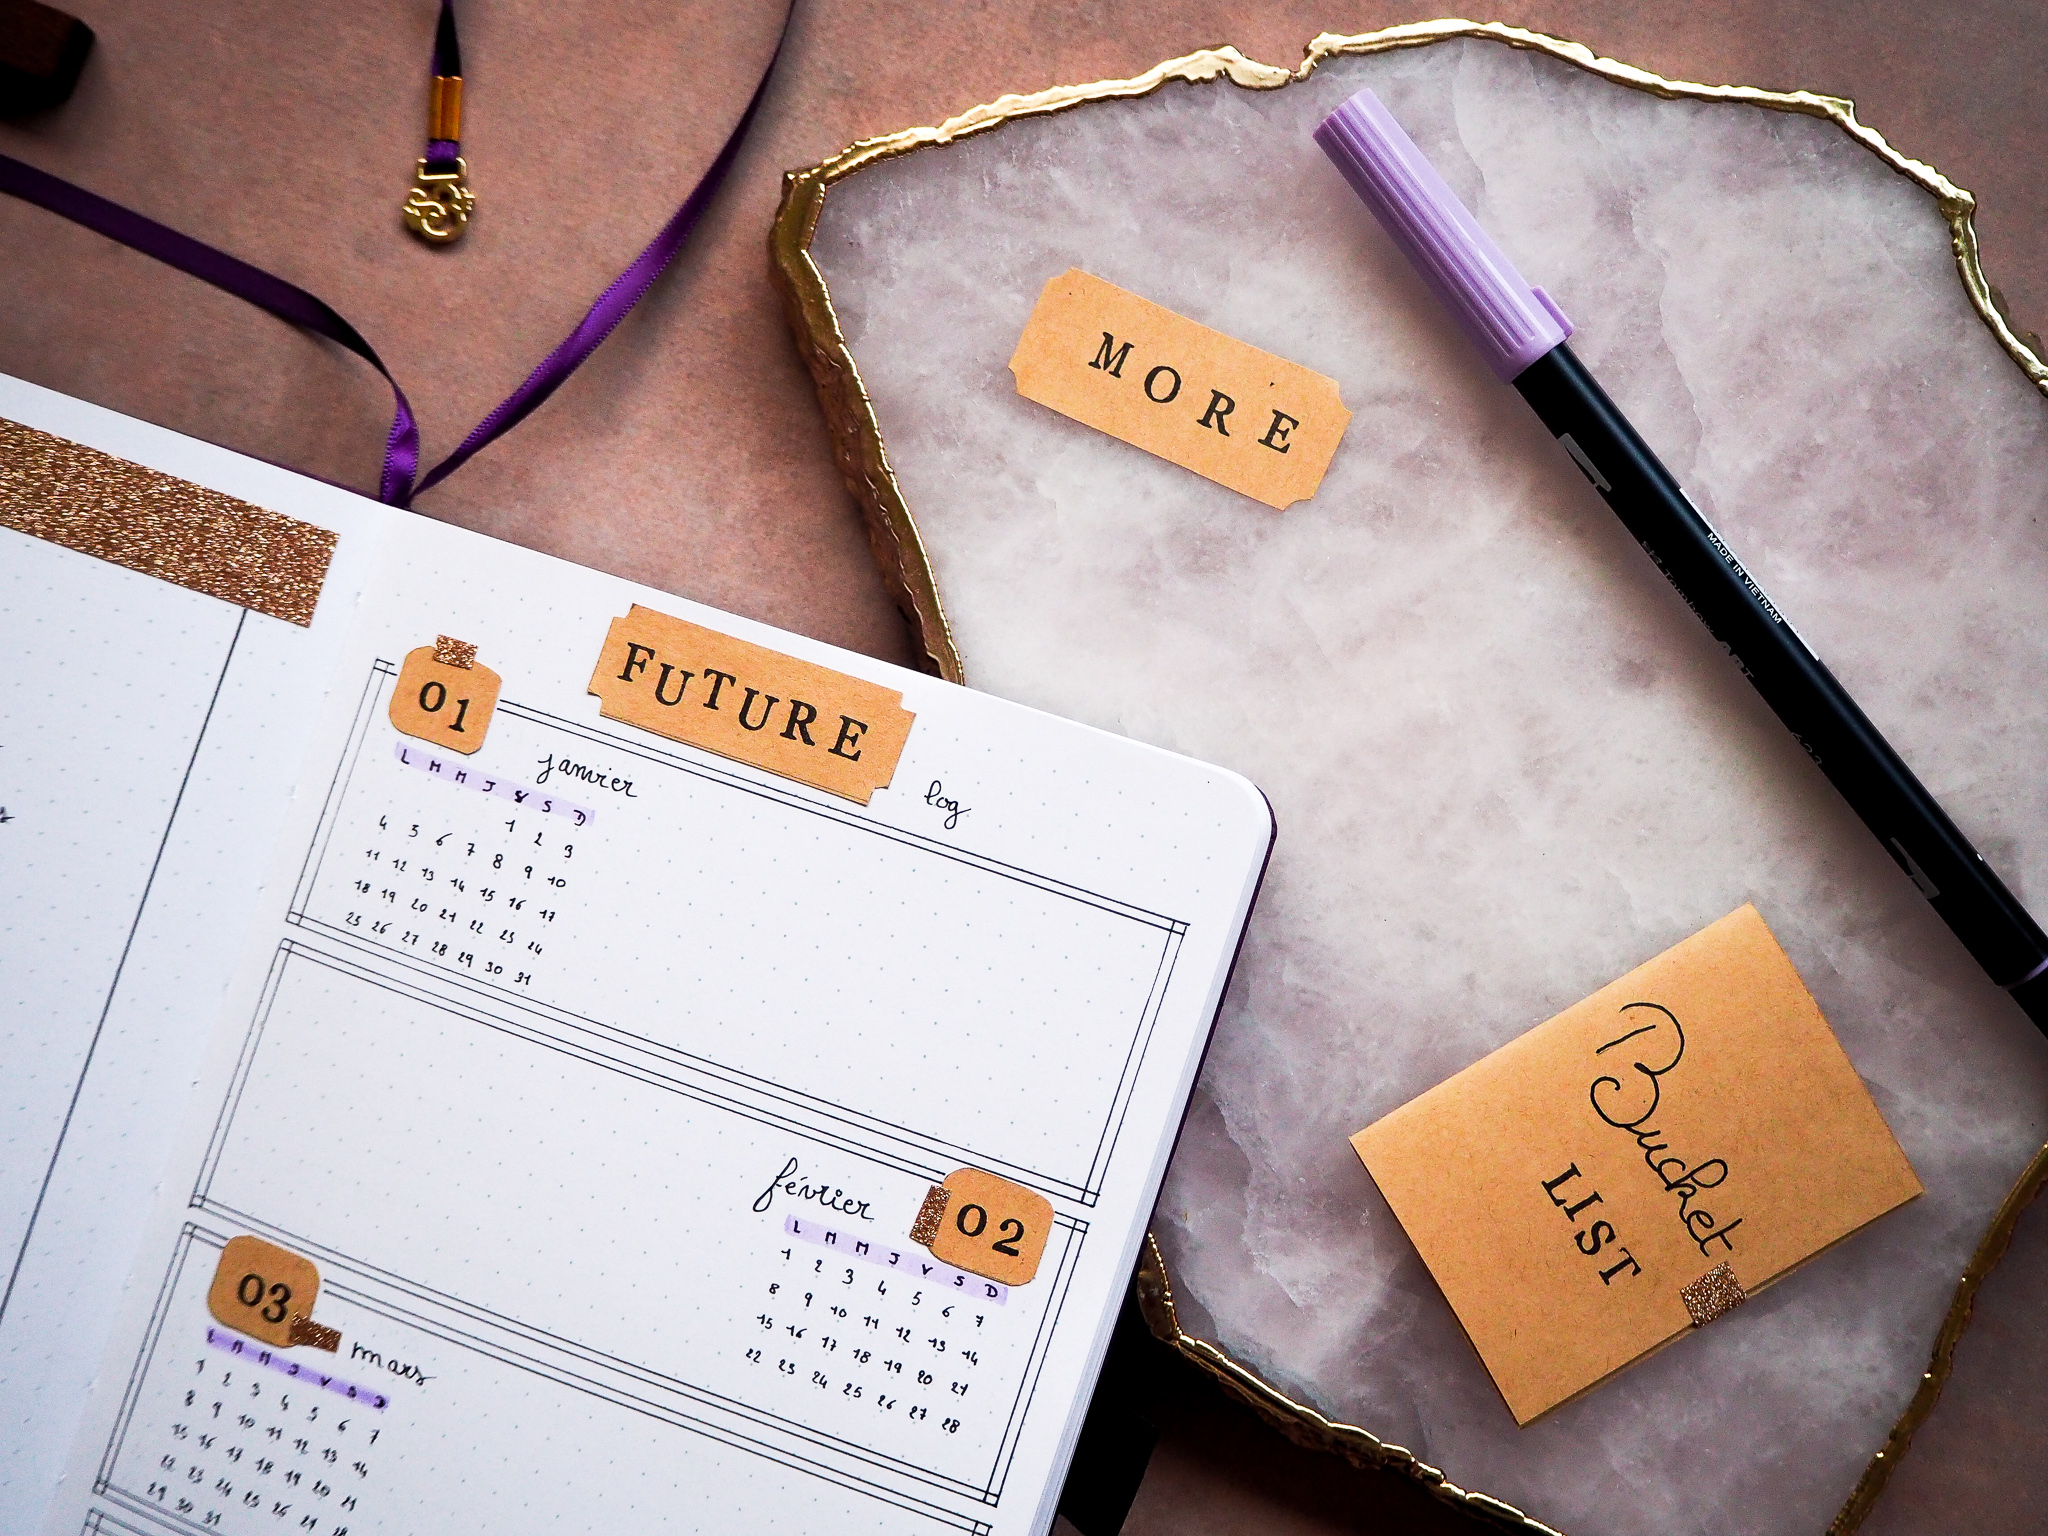 MORE
MADE IN VIETNAM
FUTURE
log
01
janvier
L M M J V S D
1 2 3
4 5 6 7 8 9 10
11 12 13 14 15 16 17
18 19 20 21 22 23 24
25 26 27 28 29 30 31
février
02
L M M J V S D
1 2 3 4 5 6 7
8 9 10 11 12 13 14
15 16 17 18 19 20 21
22 23 24 25 26 27 28
03
mars
L M M J V S D
1 2 3 4 5 6 7
8 9 10 11 12 13 14
15 16 17 18 19 20 21
22 23 24 25 26 27 28
29 30 31
Bucket
LIST